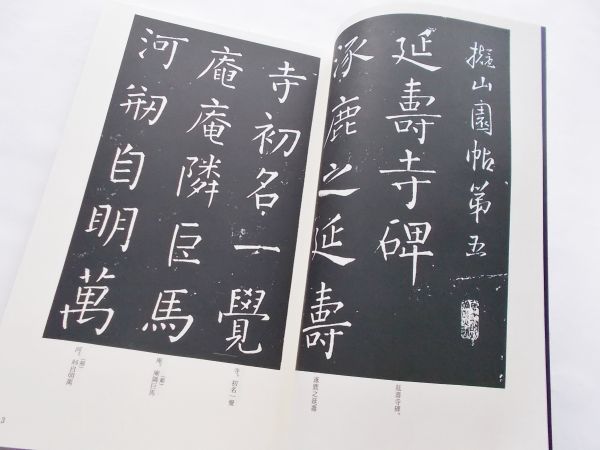 擬山園帖第五
延壽寺碑
涿鹿之延壽
寺初名一覺
庵庵隣巨馬
河剏自明萬
延壽寺碑。
涿鹿之延壽
寺、初名一覺
庵、庵隣巨馬
河、剏自明萬
3